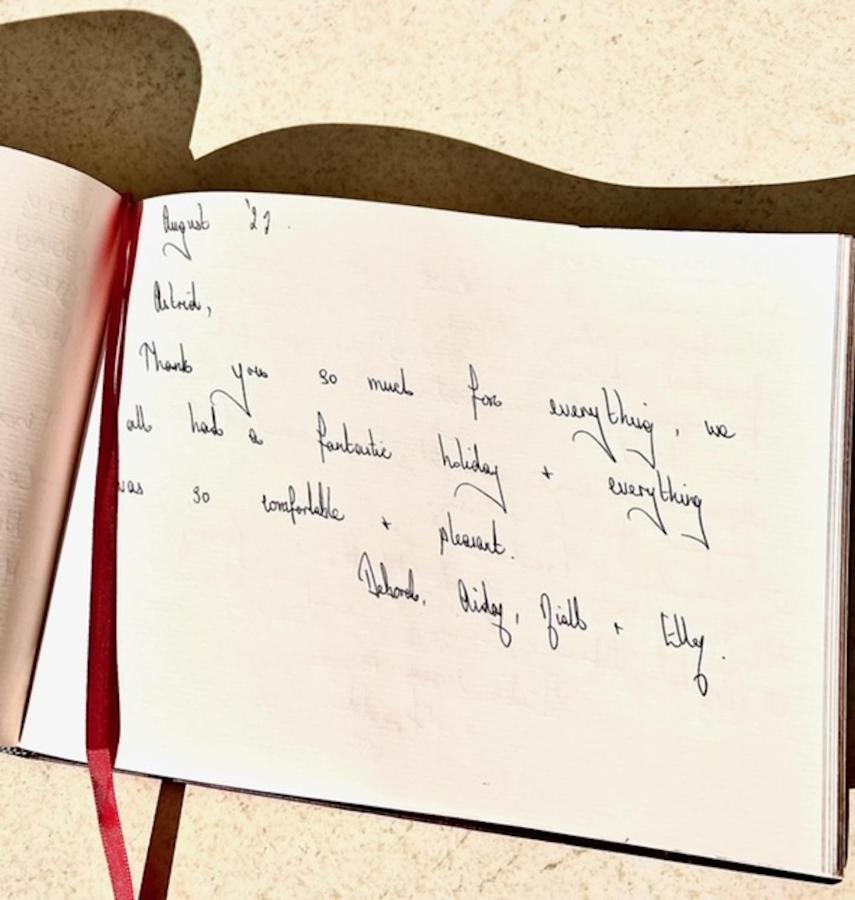 August '21.
Astrid,
Thank you so much for everything, we
all had a fantastic holiday + everything
was so comfortable + pleasant.
Deborah, + Elly.